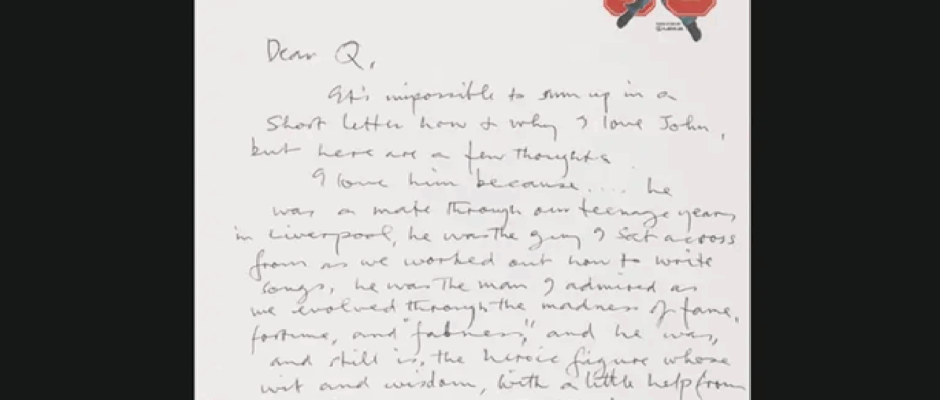 Dear Q,
It's impossible to sum up in a
short letter how & why I love John,
but here are a few thoughts
I love him because.... he
was a mate through our teenage years
in Liverpool, he was the guy I sat across
from as we worked out how to write
songs, he was the man I admired as
we evolved through the madness of fame,
fortune, and "fabness," and he was,
and still is, the heroic figure whose
wit and wisdom, with a little help from